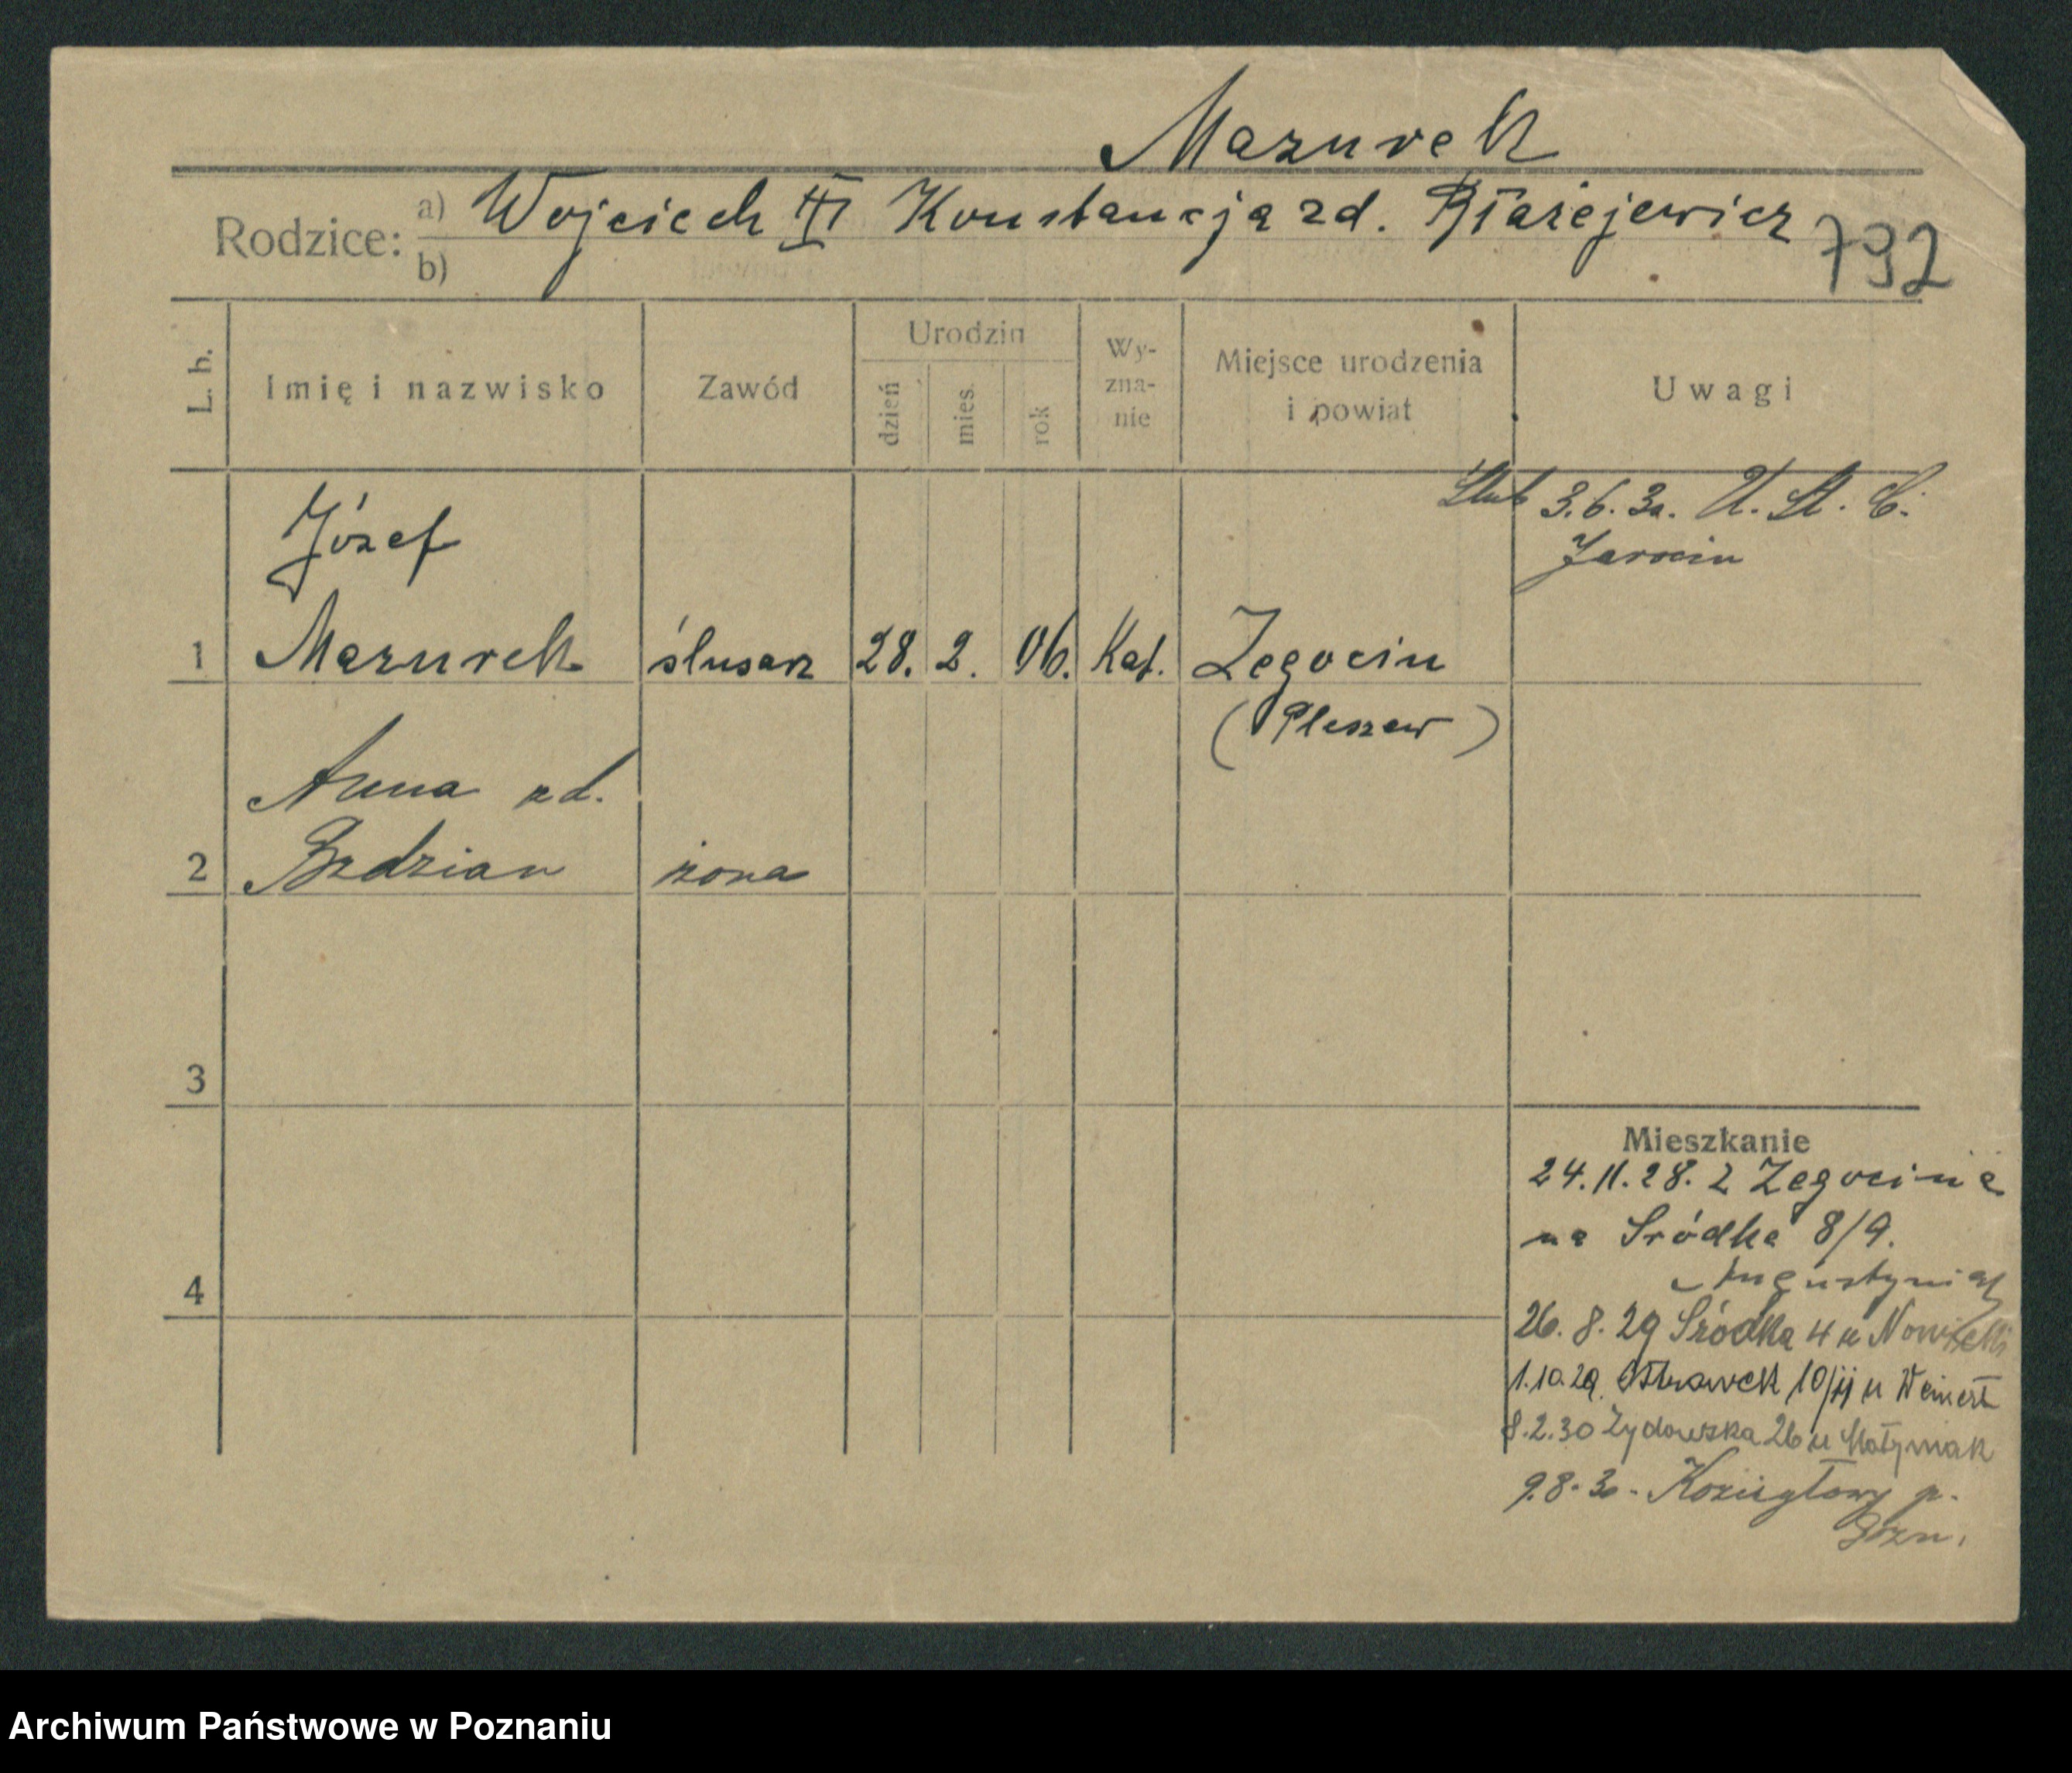 Mazurek
Rodzice: a) Wojciech III Konstancja zd. Błażejewicz
b)
792
L. b. Imię i nazwisko Zawód Urodzin dzień mies. rok Wyznanie Miejsce urodzenia i powiat Uwagi
Ślub 3.6.30. U. St. C.
Jarocin
Józef
1 Mazurek ślusarz 28. 2. 06. Kat. Żegocin
(Pleszew)
Anna zd.
2 żona
3
4
Mieszkanie
24.11.28. z Żegocina
na Śródka 8/9.
Augustyniak
26.8.29 Śródka 4 u
1.10.29. Ostrówek 10/II u Weinert
8.2.30 Żydowska 26 u
9.8.30. Koziegłowy p.
Pozn.
Archiwum Państwowe w Poznaniu